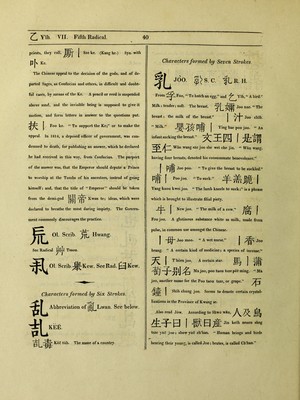 乙 Yih. VII. Fifth Radical. 40
points, they roll, 厮 | Sze ke. (Kang he:) Syn. with
卟 Ke.
The Chinese appeal to the decision of the gods, and of de-
parted Sages, as Confucius and others, in difficult and doubt-
ful cases, by means of the Ke. A pencil or reed is suspended
above sand, and the invisible being is supposed to give it
motion, and form letters in answer to the questions put.
扶 | Foo ke. "To support the Ke;" or to make the
appeal. In 1814, a deposed officer of government, was con-
demned to death, for publishing an answer, which he declared
he had received in this way, from Confucius. The purport
of the answer was, that the Emperor should depute a Prince
to worship at the Tombs of his ancestors, instead of going
himself; and, that the title of "Emperor" should be taken
from the demi-god 關帝 Kwan te; ideas, which were
declared to border on the most daring impiety. The Govern-
ment vehemently discourages the practice.
Ol. Scrib. 荒 Hwang.
See Radical 艸 Tsaou.
Ol. Scrib. Kew. See Rad. 臼 Kew.
Characters formed by Six Strokes.
乱 Abbreviation of 亂 Lwan. See below.
KEE.
Keě tuh. The name of a country.
Characters formed by Seven Strokes.
乳 JOO. S. C. R. H.
From 孚 Foo, "To hatch an egg," and 乙 Yih, "A bird."
Milk; tender; soft. The breast. 乳嬭 Joo nae "The
breast; the milk of the breast." | 汁 Joo chih.
"Milk." 嬰孩哺 | Ying hae poo joo. "An
infant sucking the breast." 文王四 | 是謂
至仁 Wăn wang sze joo she wei che jin. "Wăn wang,
having four breasts, denoted his consummate benevolence."
| 哺 Joo poo. "To give the breast to; to suckle."
| 跪 Joo kwei. "To suck." 羊羔跪 |
Yang kaou kwei joo. "The lamb kneels to suck;" is a phrase
which is brought to illustrate filial piety.
牛 | New joo. "The milk of a cow." 腐 |
Foo joo. A glutinous substance white as milk, made from
pulse, in common use amongst the Chinese.
| 母 Joo moo. "A wet nurse." | 香 Joo
heang. "A certain kind of medicine; a species of incense."
天 | Tëen joo. A certain star. 馬 | 蒲
萄子别名 Ma joo, poo taou tsze peĕ ming. "Ma
joo, another name for the Poo taou tsze, or grape." 石
鐘 | Shĭh chung joo. Seems to denote certain crystal-
lizations in the Province of Kwang se.
Also read Joo. According to Shwŏ wăn, 人及鳥
生子曰 | 獸曰產 Jin keĭh neaou săng
tsze yuĕ joo; show yuĕ ch'han. "Human beings and birds
bearing their young, is called Joo; beasts, is called Ch'han."